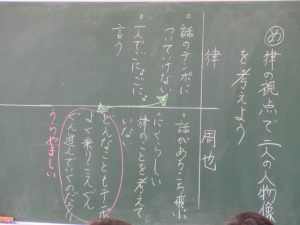 め 律の視点で二人の人物像
を考えよう
律
周也
・話のテンポに
ついていけない
・一人でごにょごにょ
言う
・話があちこち飛ぶ
・にくらしい
律のことを考えて
いない
・どんなこともテンポ
よく乗りこえてどん
どん進んでいく
うらやましい